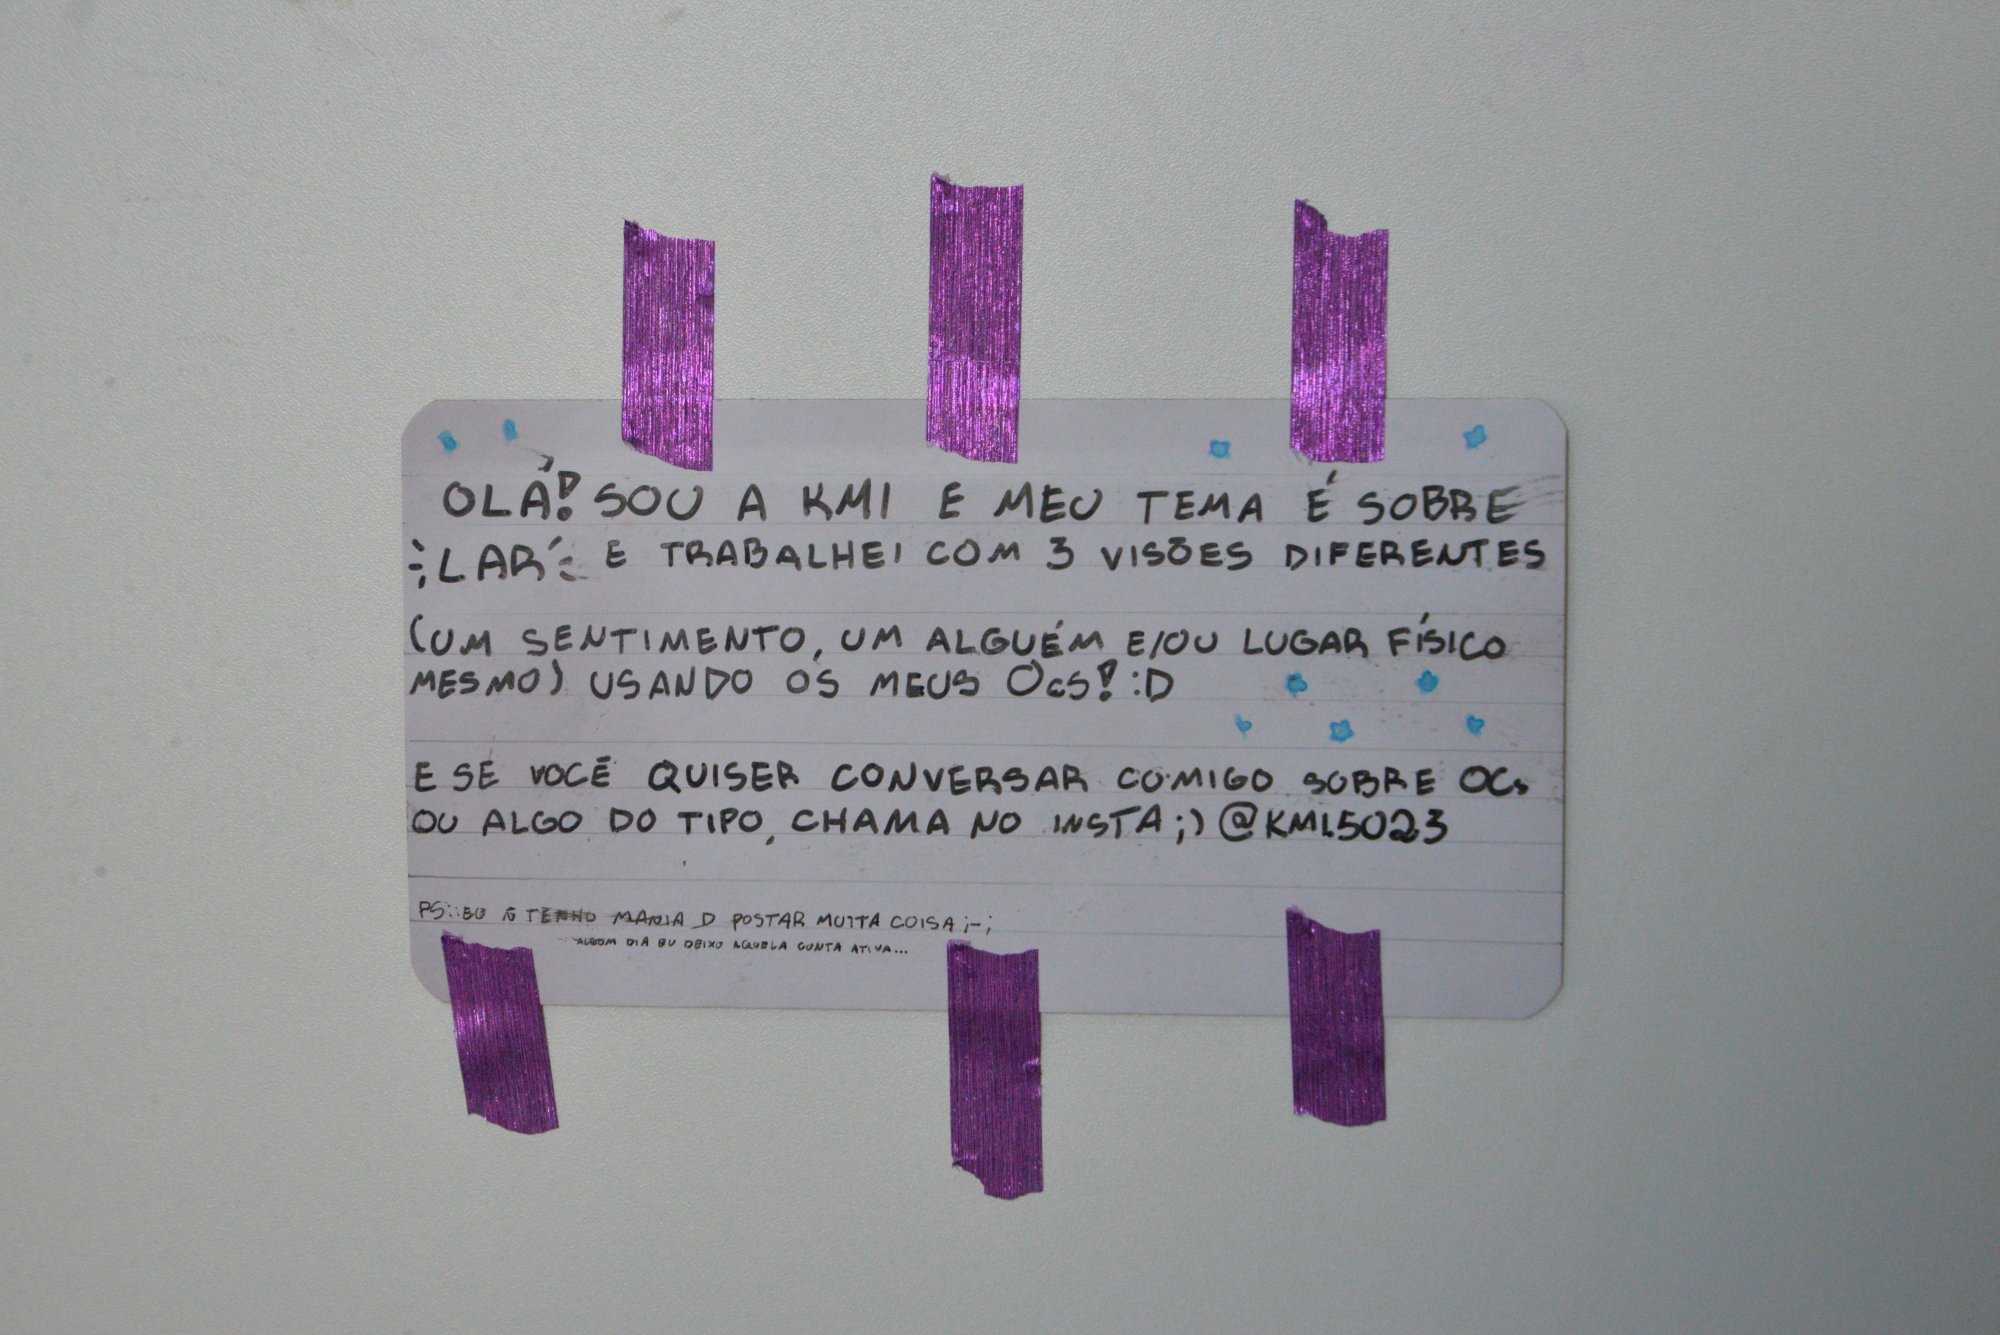 OLÁ! SOU A KMI E MEU TEMA É SOBRE
LAR E TRABALHEI COM 3 VISÕES DIFERENTES
(UM SENTIMENTO, UM ALGUÉM E/OU LUGAR FÍSICO
MESMO) USANDO OS MEUS OCS! :D
E SE VOCÊ QUISER CONVERSAR COMIGO SOBRE OCs
OU ALGO DO TIPO, CHAMA NO INSTA ;) @KMI.5023
PS: EU Ñ TENHO MANIA D POSTAR MUITA COISA ;-;
ALGUM DIA EU DEIXO AQUELA CONTA ATIVA...